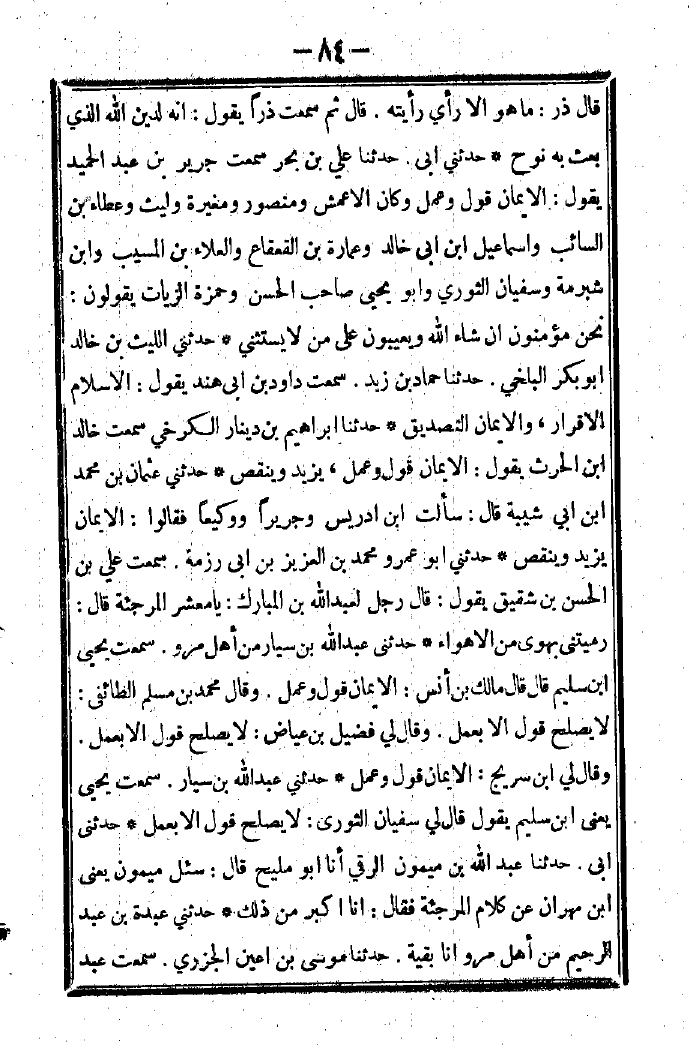 — ٨٤ —
قال ذر : ما هو الا رأي رأيته . قال ثم سمعت ذراً يقول : انه لدين الله الذي
بعث به نوح * حدثني ابى . حدثنا علي بن بحر سمعت جرير بن عبد الحميد
يقول : الايمان قول وعمل وكان الاعمش ومنصور ومغيرة وليث وعطاء بن
السائب واسماعيل ابن ابى خالد وعمارة بن القعقاع والعلاء بن المسيب وابن
شبرمة وسفيان الثوري وابو يحيى صاحب الحسن وحمزة الزيات يقولون :
نحن مؤمنون ان شاء الله ويعيبون على من لا يستثني * حدثني الليث بن خالد
ابو بكر البلخي . حدثنا حماد بن زيد . سمعت داود بن ابى هند يقول : الاسلام
الاقرار ، والايمان التصديق * حدثنا ابراهيم بن دينار الكرخي سمعت خالد
ابن الحرث يقول : الايمان قول وعمل ، يزيد وينقص * حدثني عثمان بن محمد
ابن ابي شيبة قال : سألت ابن ادريس وجريراً ووكيعاً فقالوا : الايمان
يزيد وينقص * حدثني ابو عمرو محمد بن العزيز بن ابى رزمة . سمعت علي بن
الحسن بن شقيق يقول : قال رجل لعبدالله بن المبارك : يامعشر المرجئة قال :
رميتنى بهوى من الاهواء * حدثنى عبدالله بن سيار من أهل مرو . سمعت يحيى
ابن سليم قال قال مالك بن أنس : الايمان قول وعمل . وقال محمد بن مسلم الطائفى :
لا يصلح قول الا بعمل . وقال لي فضيل بن عياض : لا يصلح قول الا بعمل .
وقال لي ابن سريج : الايمان قول وعمل * حدثني عبدالله بن سيار . سمعت يحيى
يعنى ابن سليم يقول قال لي سفيان الثورى : لا يصلح قول الا بعمل * حدثنى
ابى . حدثنا عبد الله بن ميمون الرقي أنا ابو مليح قال : سئل ميمون يعنى
ابن مهران عن كلام المرجئة فقال : انا اكبر من ذلك * حدثني عبدة بن عبد
الرحيم من أهل مرو انا بقية . حدثنا موسى بن اعين الجزري . سمعت عبد